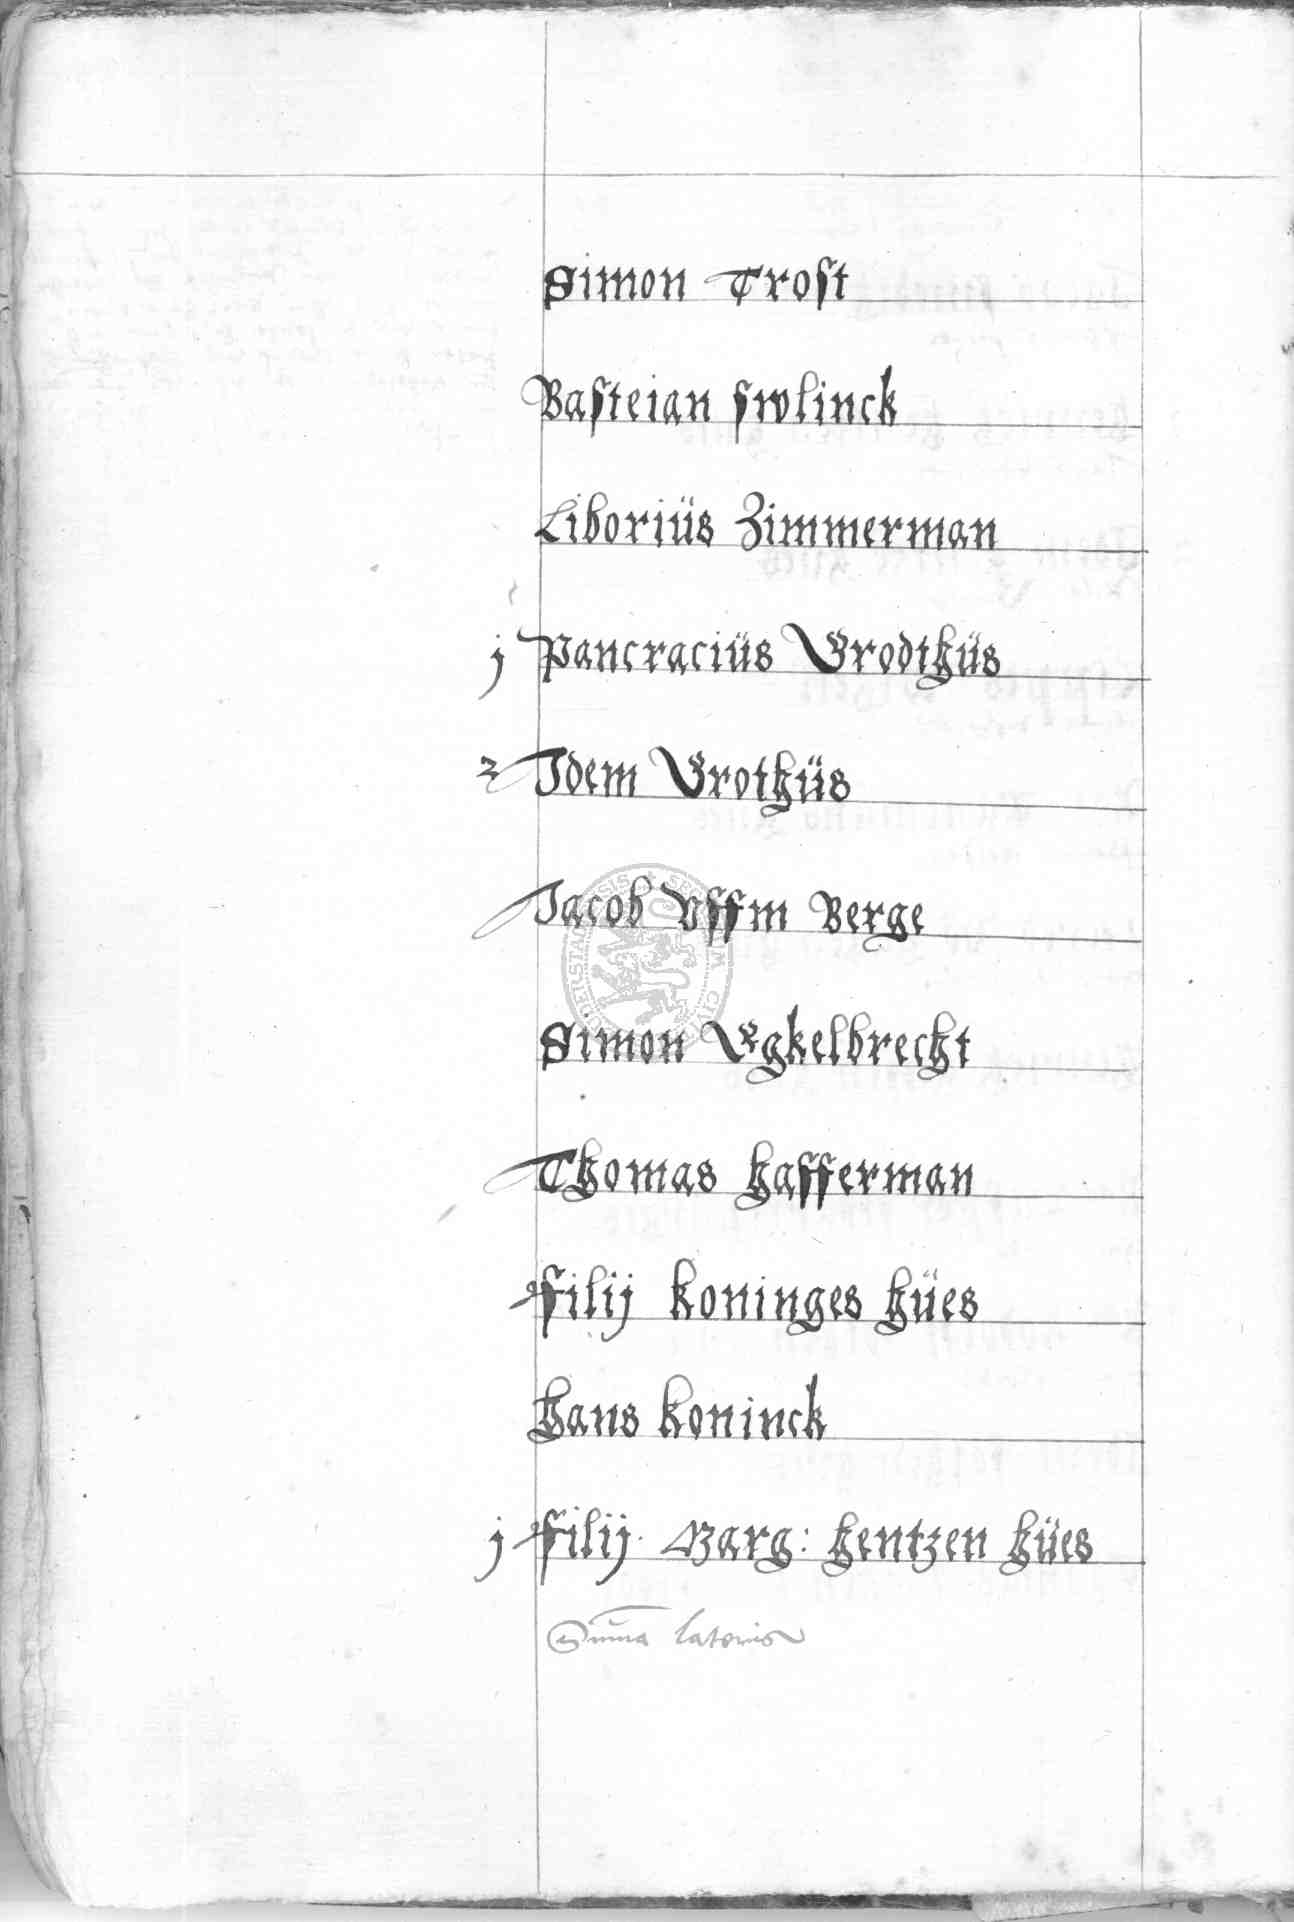 Simon Trost
Basteian swlinck
Liboriüs Zimmerman
j Pancraciüs Grodthüs
2 Idem Grothüs
Jacob Vffm Berge
Simon Egkelbrecht
Thomas hafferman
filij koninges hües
hans koninck
j filij Marg: hentzen hües
Summa lateris